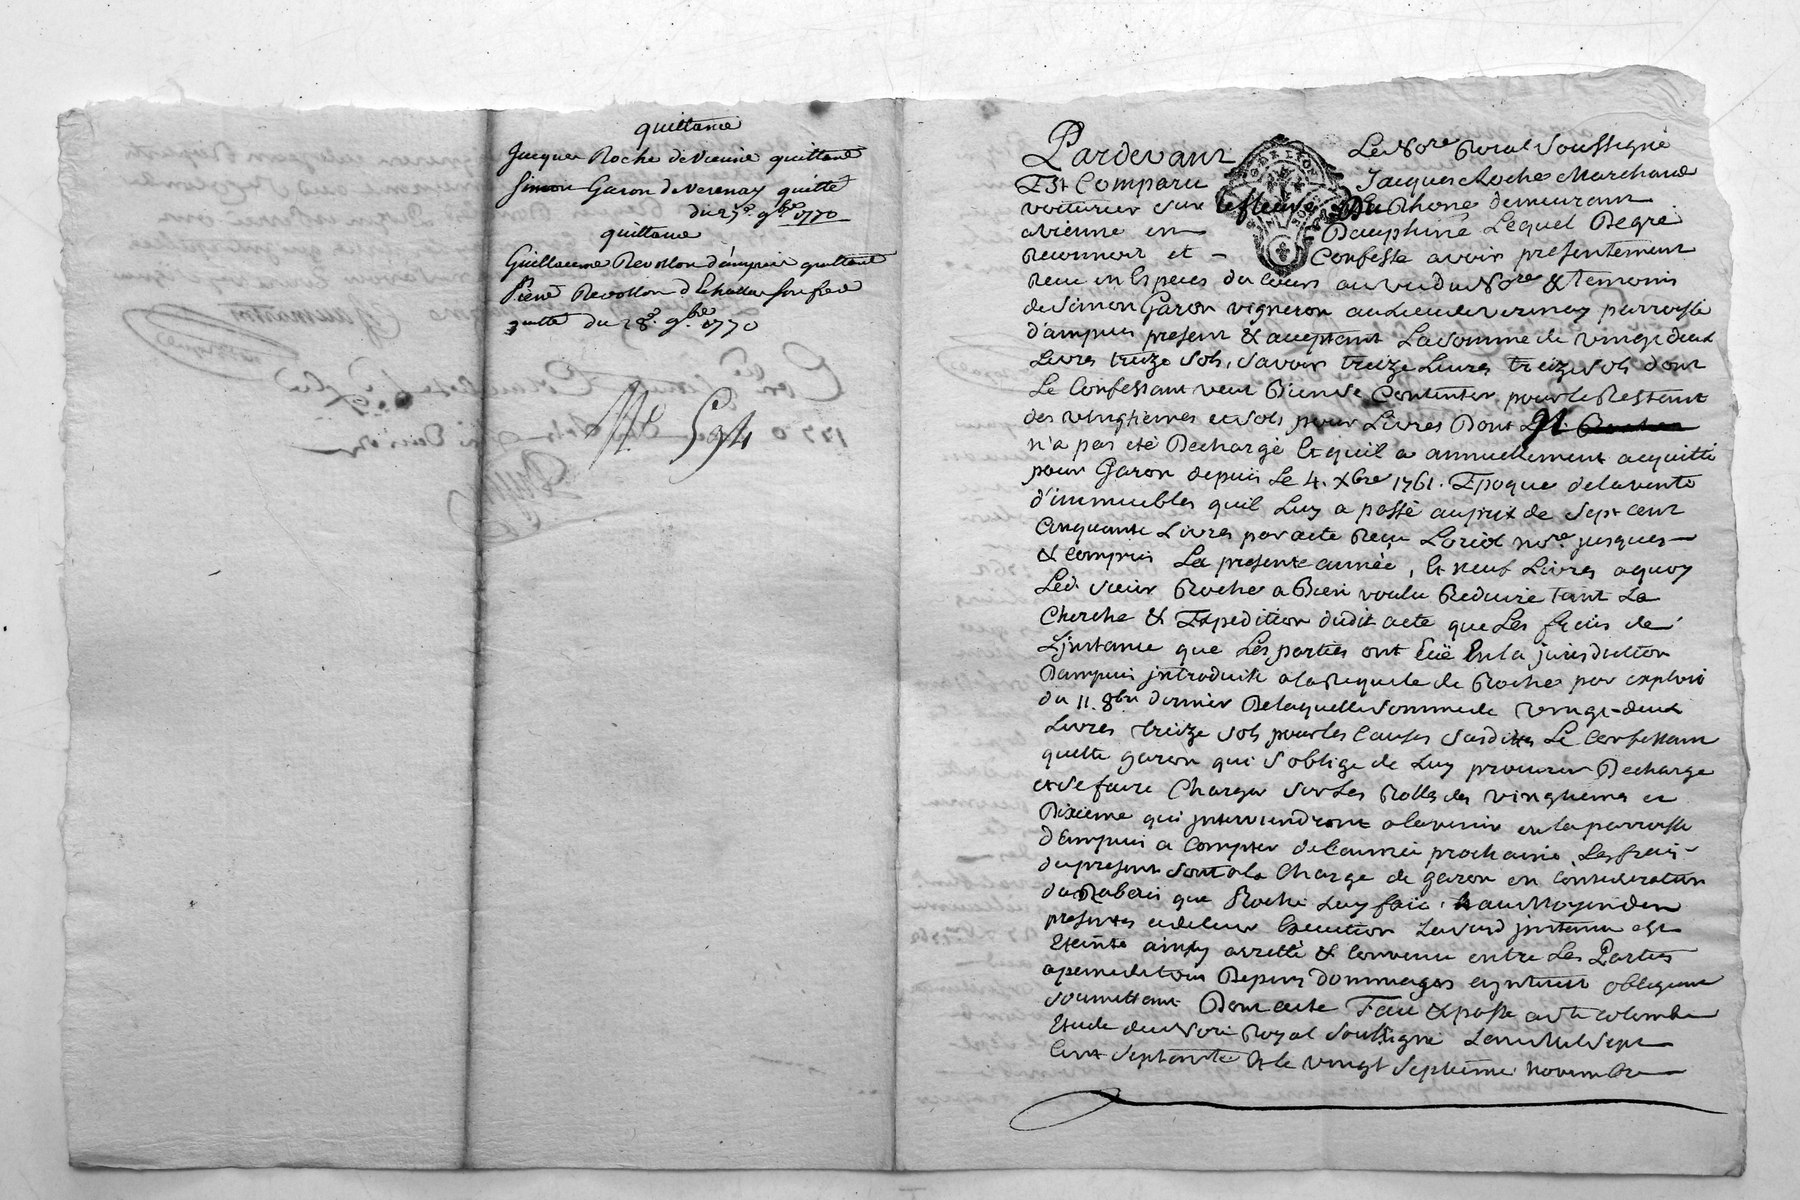 quittance
Jacques Roche de Vienne quittant
Simon Garon de Verenay quitté
du 27e. 9bre 1770
quittance
Guillaume Revollon d'ampuis quittant
Pierre Revollon d son frere
quitté du 28e. 9bre 1770
Pardevant Le Nore Royal Soussigné
Est Comparu Jacques Roche Marchand
voiturier sur le fleuve Du Rhone demeurant
a vienne en Dauphiné Lequel De gré
Reconnoit et - Confesse avoir presentement
Receu en Especes du Cours au veu du Nore & temoins
de Simon Garon vigneron au Lieu de verenay parroisse
d'ampuis present & acceptant La somme de vingt deux
Livres treize sols, savoir treize Livres treize sols dont
Le Confessant veut Bien se Contenter pour le Restant
des vingtiemes et sols pour Livres Dont il
n'a pas eté Dechargé Et qu'il a annuellement acquitté
pour Garon depuis Le 4. Xbre 1761. Epoque de la vente
d'immeubles qu'il Luy a passé au prix de sept cent
Cinquante Livres par acte Receu Loriol nore. jusques
& Compris La presente année, Et neuf Livres a quoy
Led. sieur Roche a Bien voulu Reduire tant La
Cherche & Expedition dudit acte que Les frais de
L'jnstance que Les parties ont Eüe En la jurisdiction
Dampuis jntroduite a la Requete de Roche par exploit
du 11. 8bre dernier De laquelle somme de vingt-deux
Livres treize sols pour les Causes susdittes Le Confessant
quitte garon qui s'oblige de Luy procurer Decharge
et se faire Charger sur Les Rolles des vingtiemes et
Dixieme qui jnterviendront a l'avenir en la parroisse
d'Ampuis a Compter de l'année prochaine. Les frais
du present sont a la Charge de garon en Consideration
du Rabais que Roche Luy fait. au Moyen des
presentes et de leur Execution Lausd jnstance est
Eteinte ainsy arretté & Convenu entre Les Parties
a peine de tous Depens Dommages et jnterets obligeant
soumettant Dont acte Fait & passé a Ste Colombe
Etude du Nore Royal soussigné L'an Mil sept
Cent septante & le vingt septieme novembre